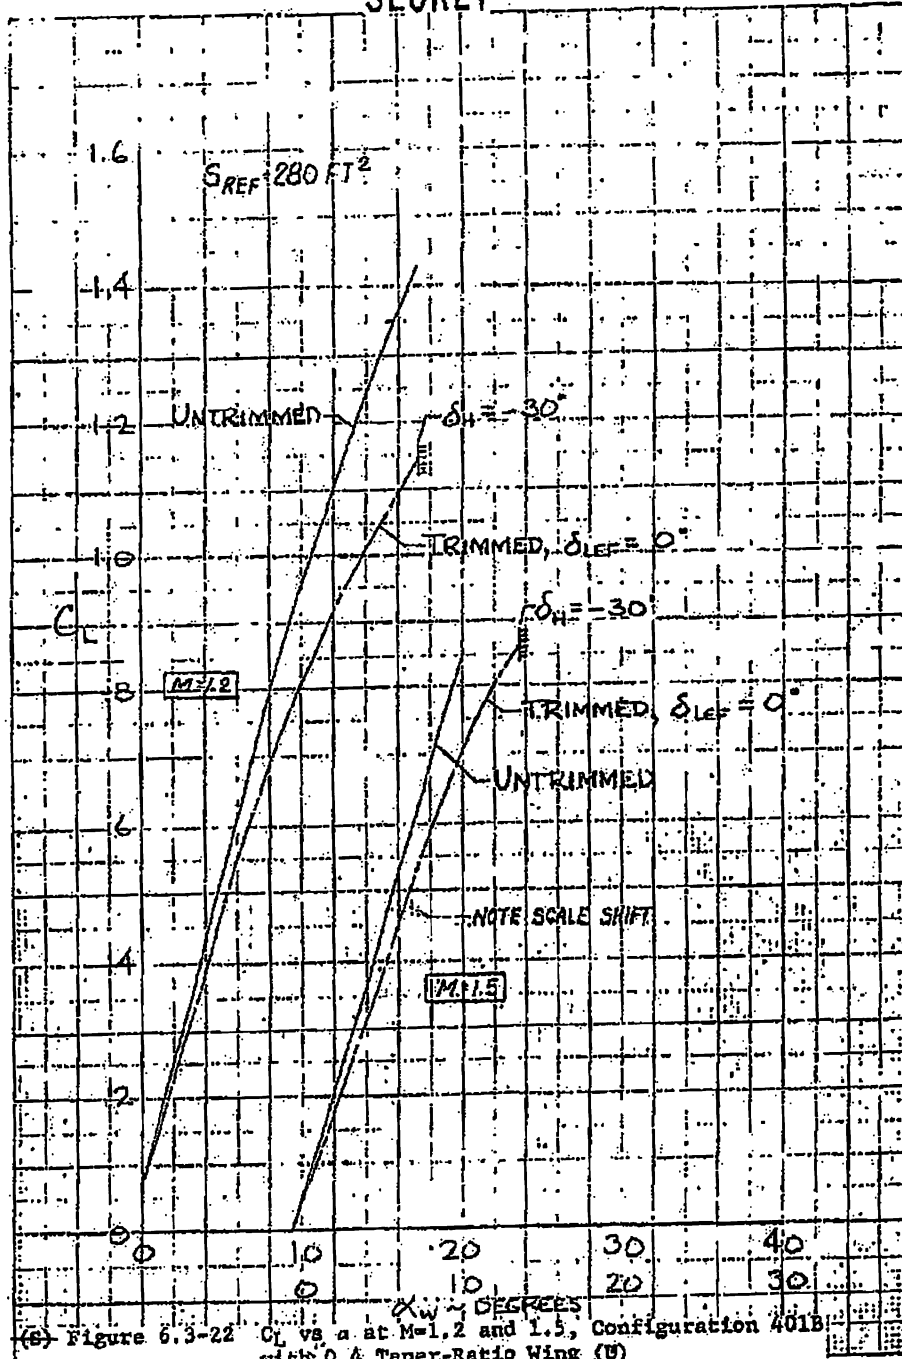 SECRET
1.6
S REF = 280 FT²
1.4
UNTRIMMED
1.2
δH = -30°
TRIMMED, δLEF = 0°
1.0
CL
δH = -30°
M=1.2
.8
TRIMMED, δLEF = 0°
UNTRIMMED
.6
NOTE SCALE SHIFT
.4
M=1.5
.2
0
0 10 20 30 40
0 10 20 30
αw ~ DEGREES
(S) Figure 6.3-22 CL vs α at M=1.2 and 1.5, Configuration 401B
with 0.4 Taper-Ratio Wing (U)